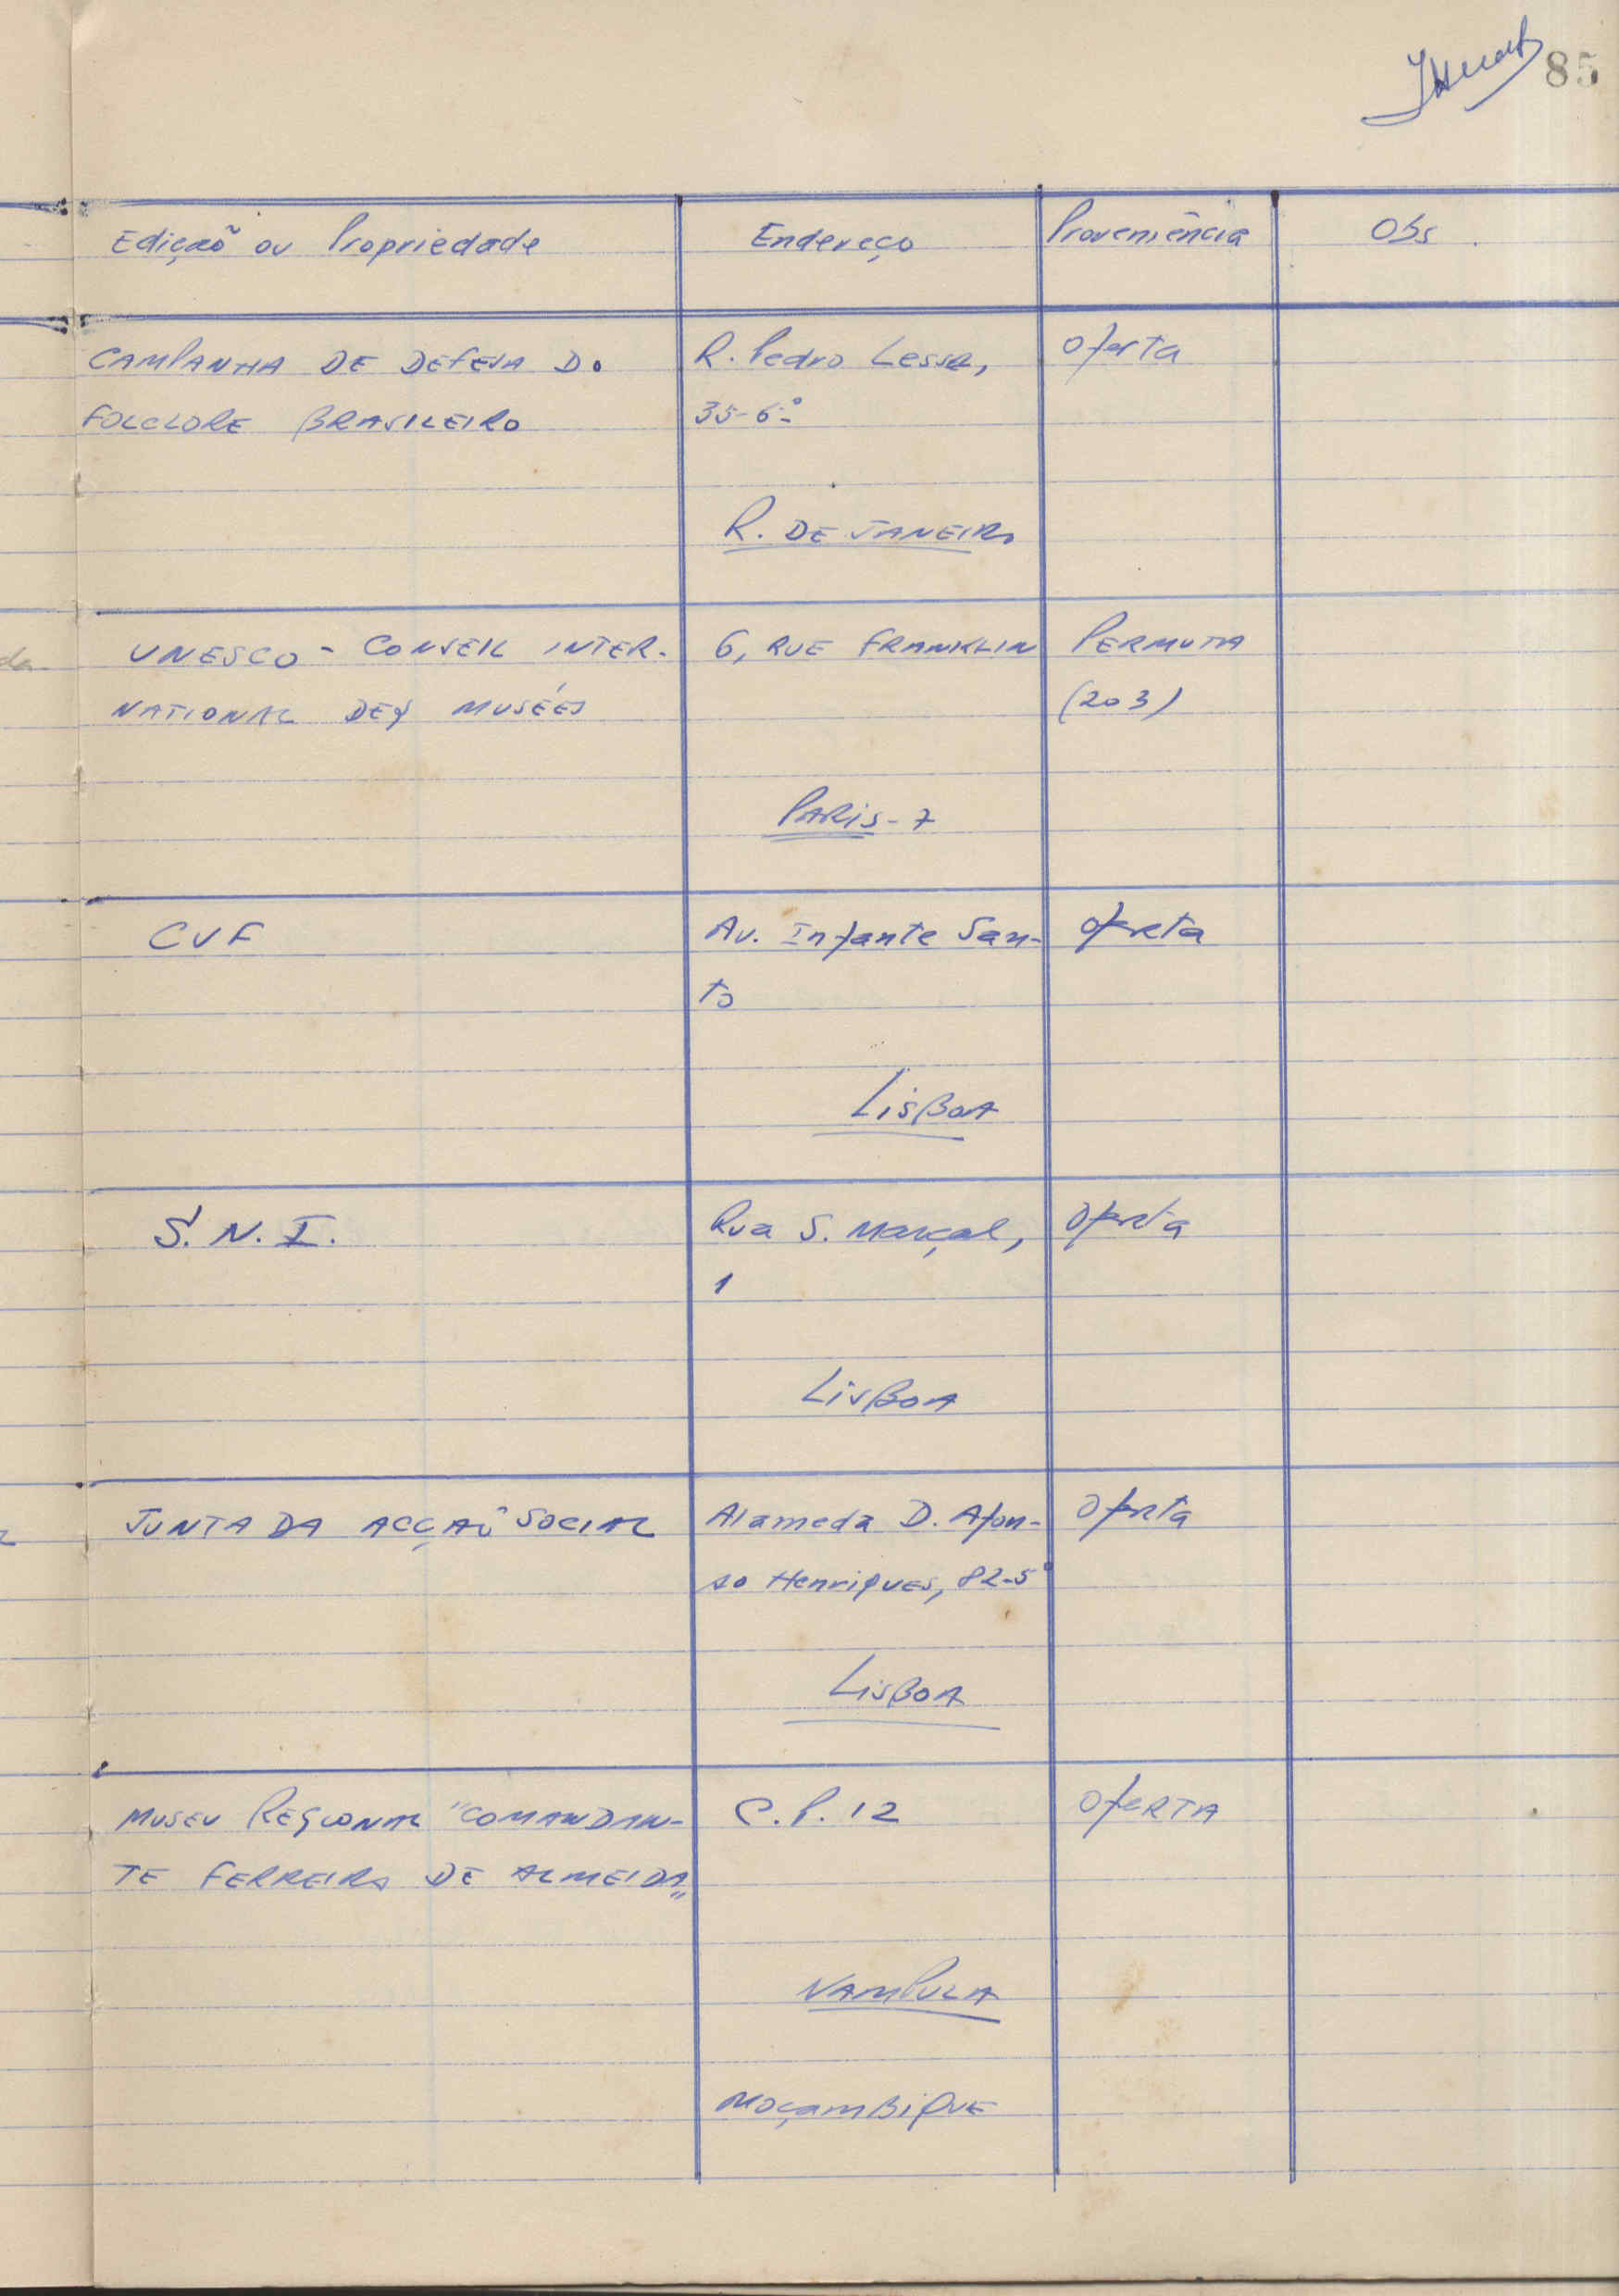 85
Edição ou Propriedade Endereço Proveniência Obs.
CAMPANHA DE DEFESA DO R. Pedro Lessa, Oferta
FOLCLORE BRASILEIRO 35-6.º
R. DE JANEIRO
UNESCO - CONSEIL INTER- 6, RUE FRANKLIN PERMUTA
NATIONAL DES MUSÉES (203)
PARIS-7
CVF Av. Infante San- oferta
to
LISBOA
S.N.I. Rua S. Marçal, oferta
1
LISBOA
JUNTA DA ACÇÃO SOCIAL Alameda D. Afon- oferta
so Henriques, 82-5º
LISBOA
MUSEU REGIONAL "COMANDAN- C.P. 12 OFERTA
TE FERREIRA DE ALMEIDA"
NAMPULA
MOÇAMBIQUE